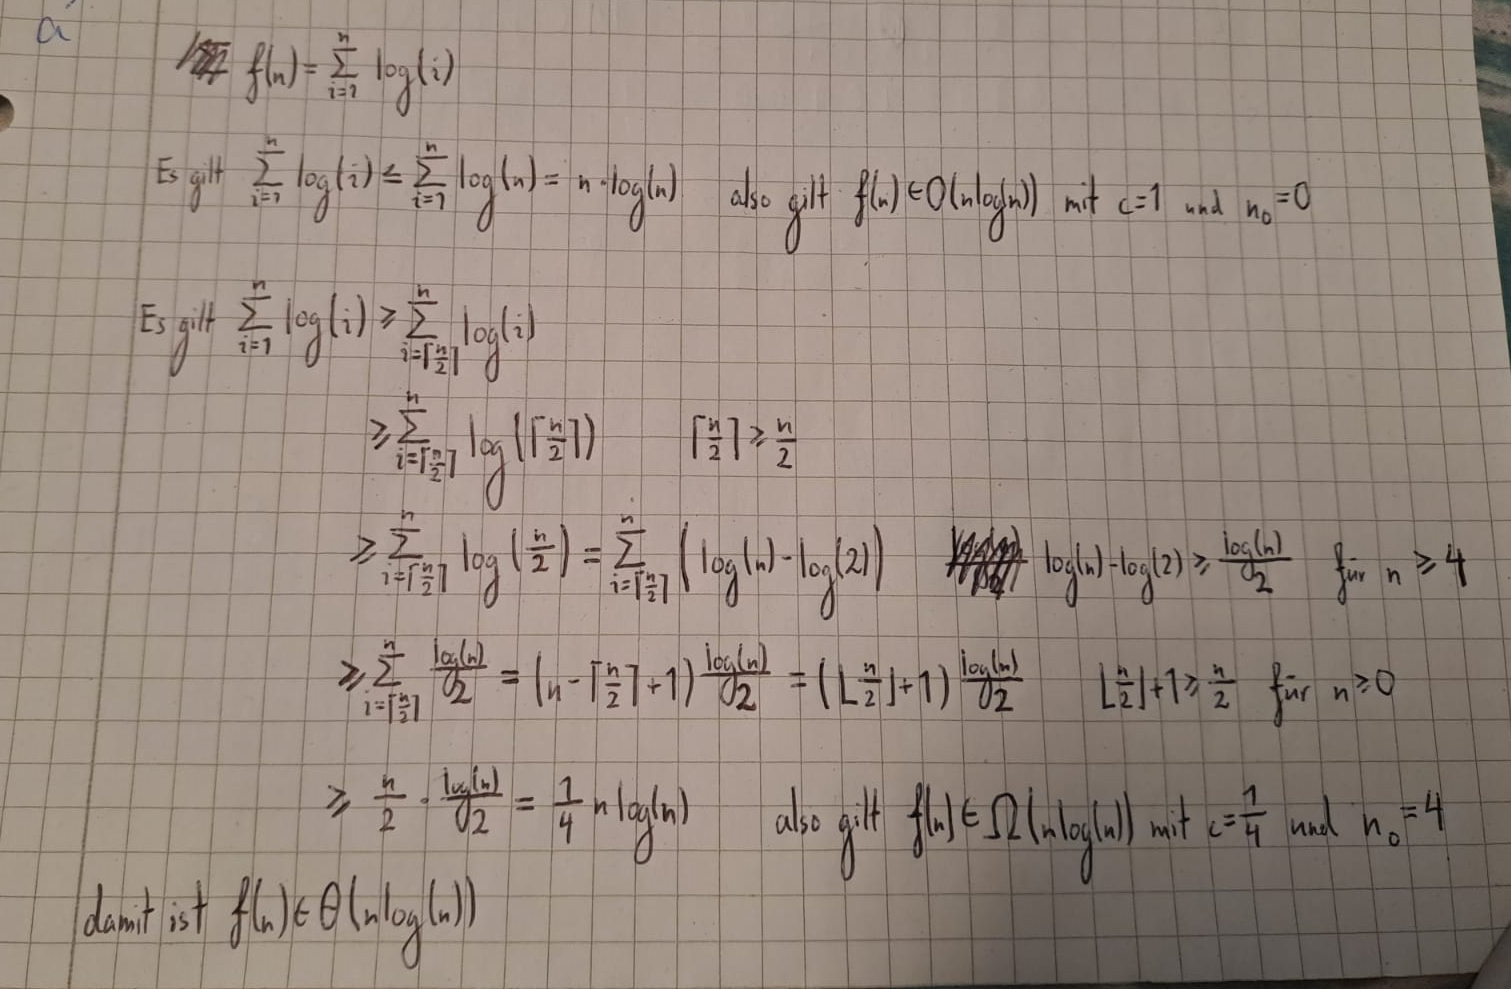 a
f(n) = ∑_{i=1}^{n} log(i)
Es gilt ∑_{i=1}^{n} log(i) ≤ ∑_{i=1}^{n} log(n) = n·log(n) also gilt f(n) ∈ O(n log(n)) mit c=1 und n₀=0
Es gilt ∑_{i=1}^{n} log(i) ≥ ∑_{i=⌈n/2⌉}^{n} log(i)
≥ ∑_{i=⌈n/2⌉}^{n} log(⌈n/2⌉) ⌈n/2⌉ ≥ n/2
≥ ∑_{i=⌈n/2⌉}^{n} log(n/2) = ∑_{i=⌈n/2⌉}^{n} (log(n) - log(2)) log(n) - log(2) ≥ log(n)/2 für n ≥ 4
≥ ∑_{i=⌈n/2⌉}^{n} log(n)/2 = (n - ⌈n/2⌉ + 1) log(n)/2 = (⌊n/2⌋ + 1) log(n)/2 ⌊n/2⌋ + 1 ≥ n/2 für n ≥ 0
≥ n/2 · log(n)/2 = 1/4 n log(n) also gilt f(n) ∈ Ω(n log(n)) mit c = 1/4 und n₀ = 4
damit ist f(n) ∈ θ(n log(n))